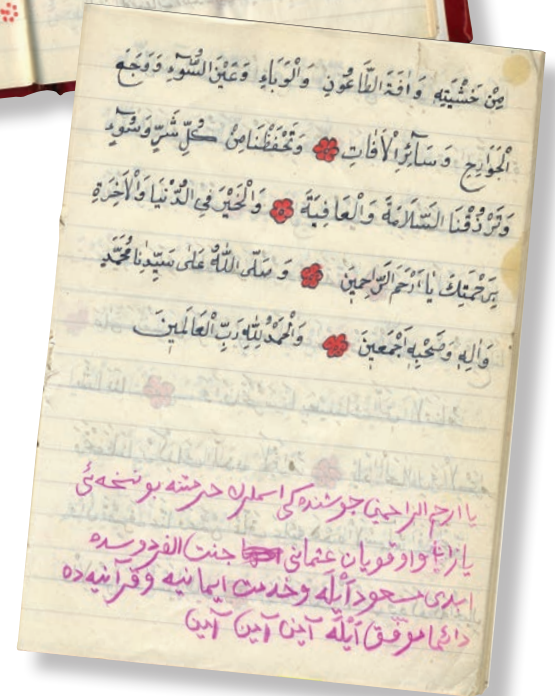 مِنْ خَشْيَتِهِ وَاٰفَةَ الطَّاعُونِ وَالْوَبَاءِ وَعَيْنَ السُّوۤءِ وَوَجَعَ
الْجَوَارِحِ وَسَاۤئِرَ الْاٰفَاتِ وَتَحْفَظَنَا مِنْ كُلِّ شَرٍّ وَسُوۤءٍ
وَتَرْزُقَنَا السَّلَامَةَ وَالْعَافِيَةَ وَالْخَيْرَ فِي الدُّنْيَا وَالْاٰخِرَةِ
بِرَحْمَتِكَ يَا اَرْحَمَ الرَّاحِمِينَ وَ صَلَّى اللّٰهُ عَلٰى سَيِّدِنَا مُحَمَّدٍ
وَاٰلِهِ وَصَحْبِهِ اَجْمَعِينَ وَالْحَمْدُ لِلّٰهِ رَبِّ الْعَالَمِينَ
يا ارحم الراحمين جوشنده كى اسملرك حرمتنه بو نسخه ئى
يازان و اوقويان عثمانى جنت الفردوسده
ابدى مسعود اَيْله و خدمت ايمانيه و قرآنيه ده
دائما موفق اَيْلَه آمين آمين آمين